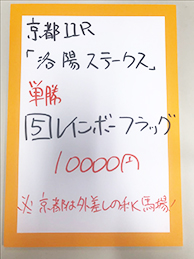 京都11R
「洛陽ステークス」
単勝
5レインボーフラッグ
10000円
※京都は外差しのNK馬場!